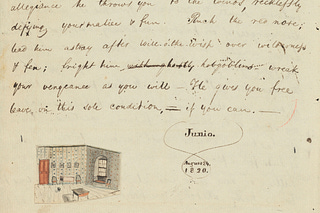 allegiance he throws you to the winds, recklessly
defying your malice & fun. Pluck the red nose;
lead him astray after will-o'the-wisp over wilderness
& fen; fright him with ghostly hobgoblins — wreak
your vengeance as you will — He gives you free
leave, on this sole condition, — if you can. —
Junio.
August 14.
1890.